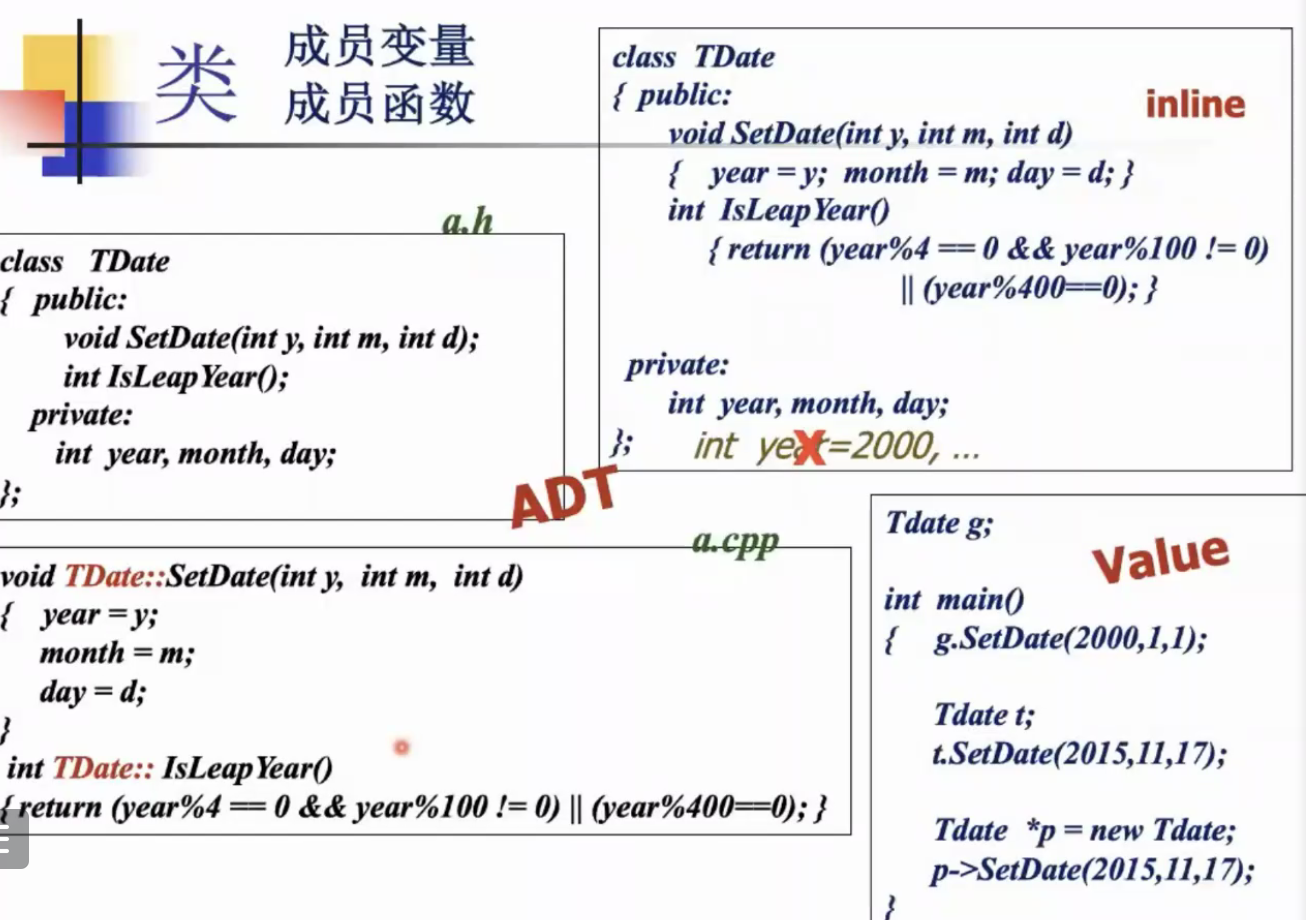 类
成员变量
成员函数
a.h
class TDate
{ public:
void SetDate(int y, int m, int d);
int IsLeapYear();
private:
int year, month, day;
};
ADT
class TDate
{ public:
inline
void SetDate(int y, int m, int d)
{ year = y; month = m; day = d; }
int IsLeapYear()
{ return (year%4 == 0 && year%100 != 0)
|| (year%400==0); }
private:
int year, month, day;
};
int year=2000, ...
X
a.cpp
void TDate::SetDate(int y, int m, int d)
{ year = y;
month = m;
day = d;
}
int TDate:: IsLeapYear()
{ return (year%4 == 0 && year%100 != 0) || (year%400==0); }
Tdate g;
Value
int main()
{ g.SetDate(2000,1,1);
Tdate t;
t.SetDate(2015,11,17);
Tdate *p = new Tdate;
p->SetDate(2015,11,17);
}